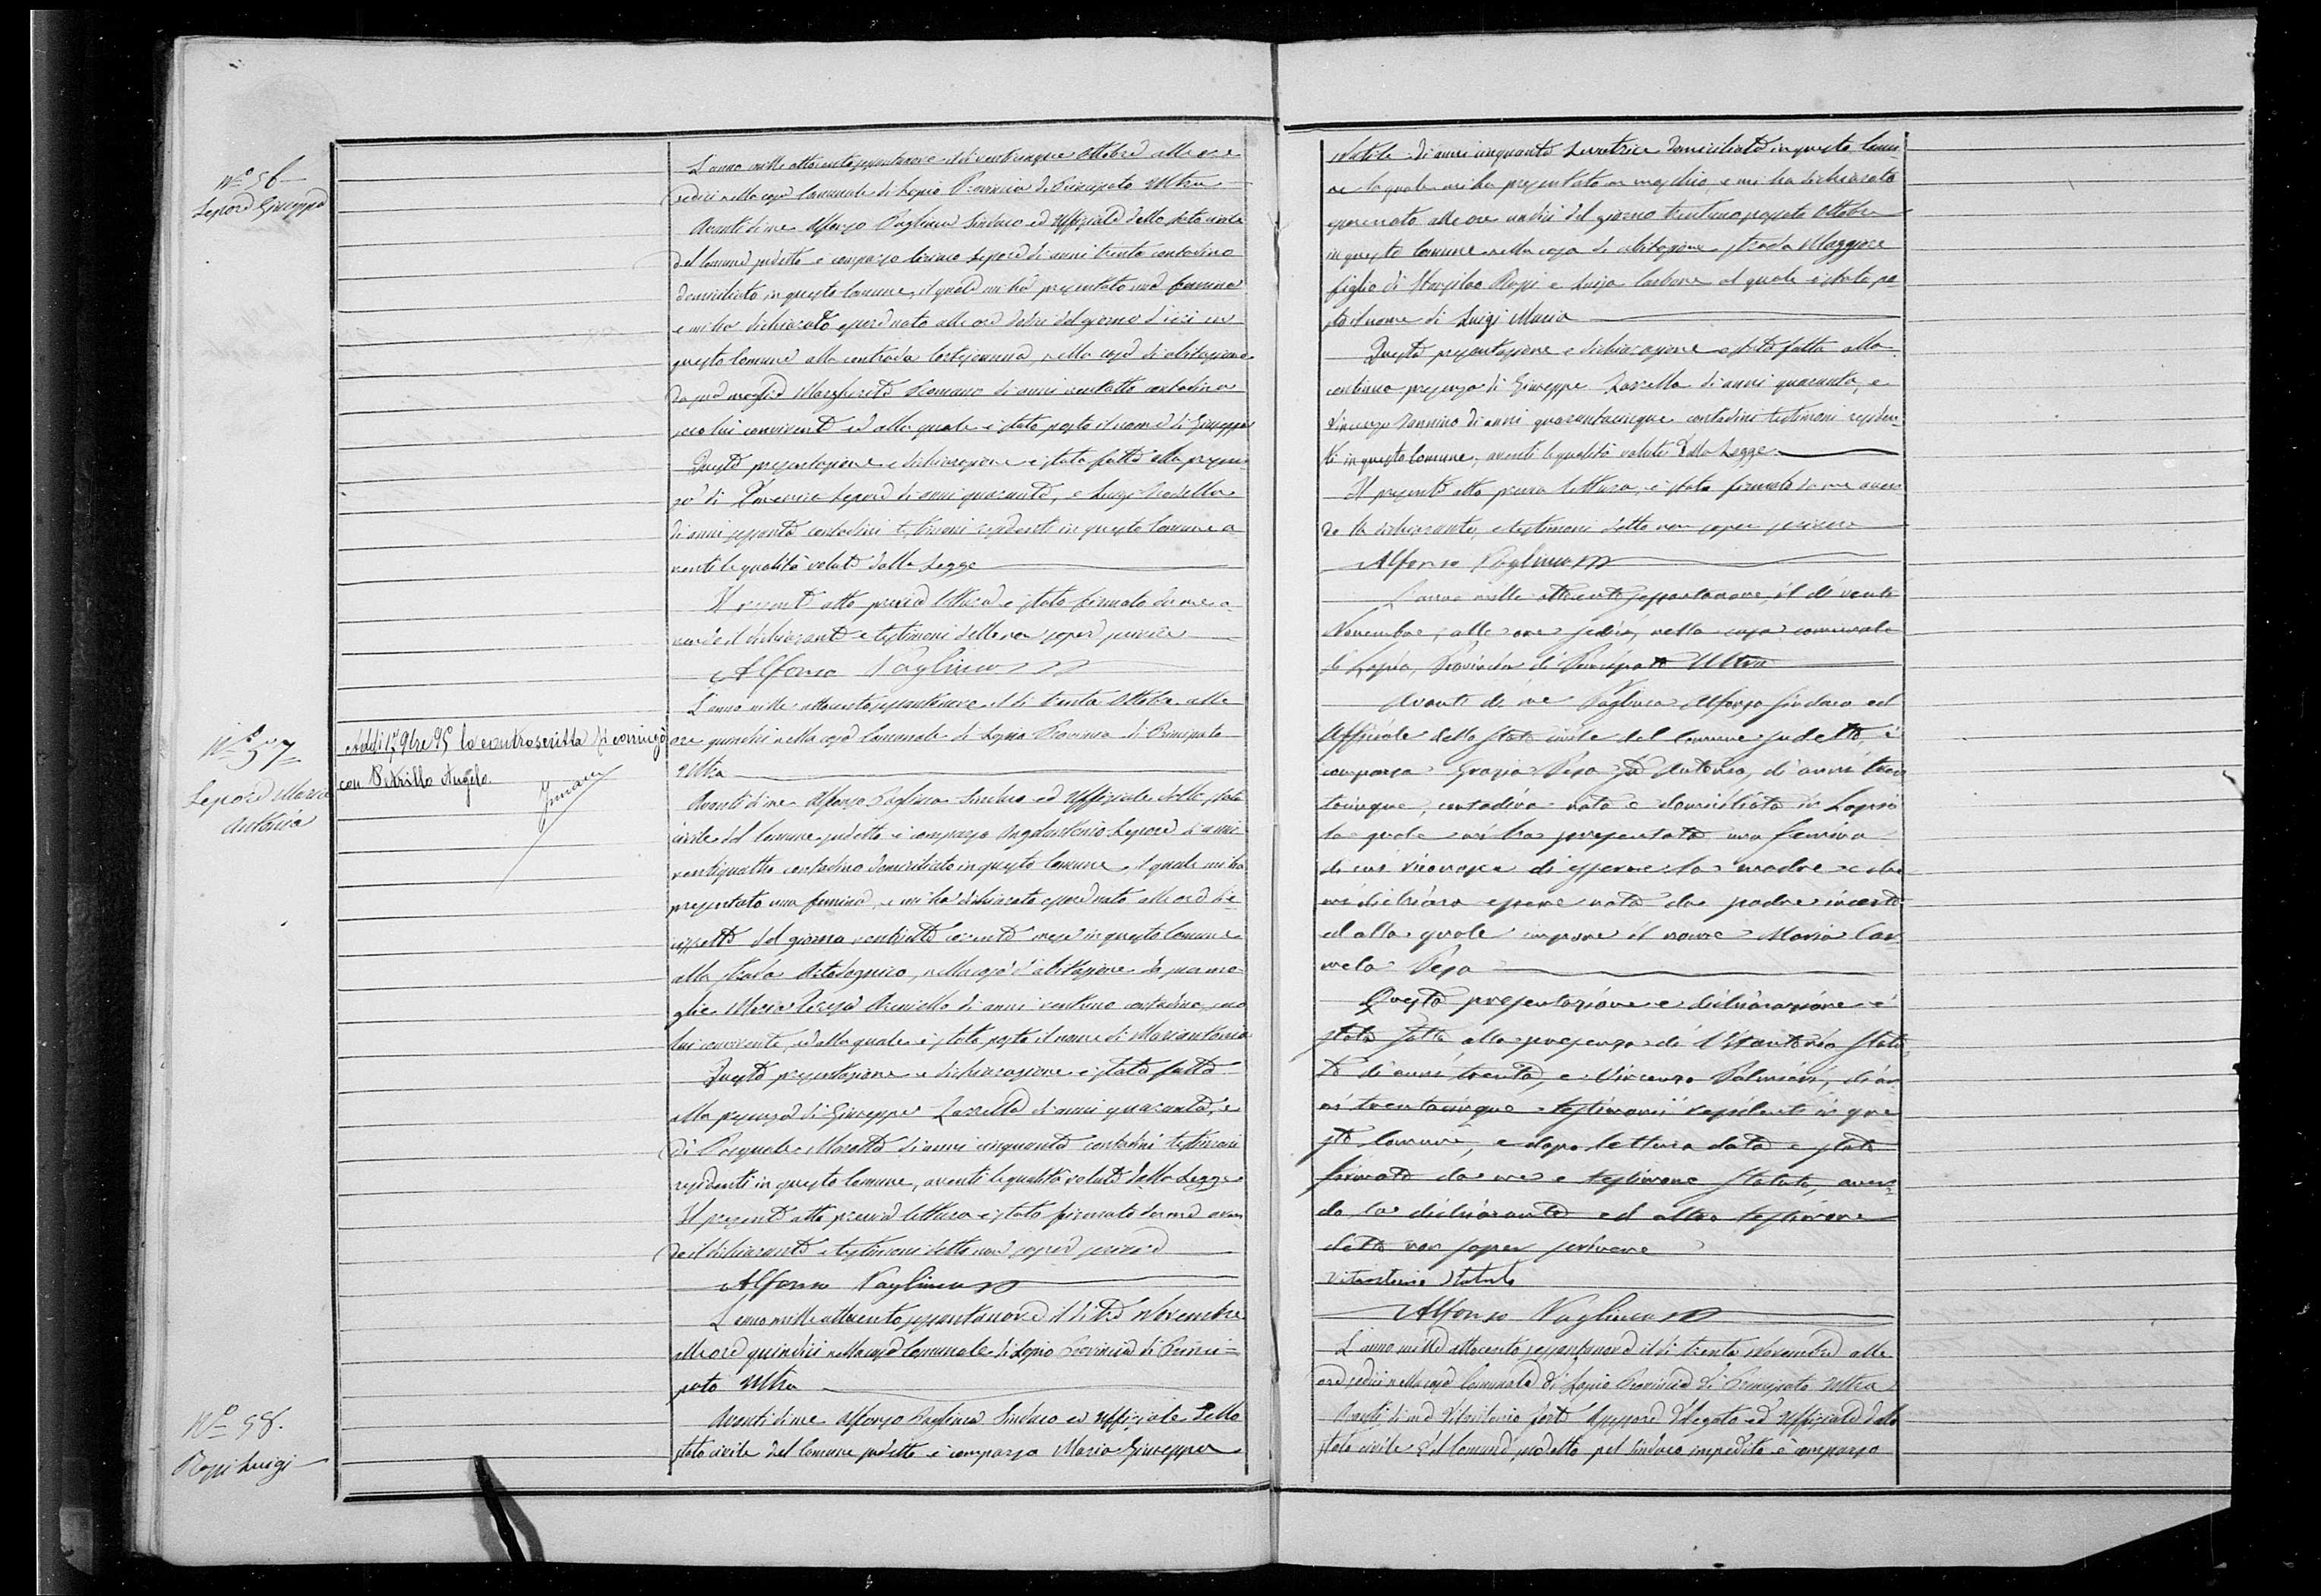 Nº 56
Lepore Giuseppa
L'anno mille ottocento sessantanove il dì venticinque Ottobre alle ore
sedici nella casa Comunale di Lapio Provincia di Principato Ultra
Avanti di me Alfonso Pagliuca Sindaco ed Uffiziale dello stato civile
del Comune sudetto è comparso Lepore di anni trenta contadino
domiciliato in questo Comune, il quale mi ha presentato una femina
e mi ha dichiarato essere nata alle ore del giorno d'ieri in
questo Comune alla contrada nella casa di abitazione
da sua moglie Margherita Romano di anni ventotto contadina
seco lui convivente ed alla quale è stato posto il nome di Giuseppa
Questa presentazione e dichiarazione è stata fatta alla presen
za di Lepore di anni quaranta, e Luigi
di anni sessanta contadini testimoni residenti in questo Comune a
venti le qualità volute dalla Legge
Il presente atto previa lettura è stato firmato da me a
vendo il dichiarante e testimoni detto non saper scrivere
Alfonso Pagliuca
Nº 57
Lepore Maria
Antonia
Addì 17 9bre 95 la controscritta si coniugò
con Petrillo Angelo.
L'anno mille ottocento sessantanove il dì trenta Ottobre alle
ore quindici nella casa Comunale di Lapio Provincia di Principato
Ultra
Avanti di me Alfonso Pagliuca Sindaco ed Uffiziale dello stato
civile del Comune sudetto è comparso Angelantonio Lepore di anni
ventiquattro contadino domiciliato in questo Comune, il quale mi ha
presentato una femina, e mi ha dichiarato essere nata alle ore di
ciassette del giorno ventisette corrente mese in questo Comune
alla strada nella casa d'abitazione da sua mo
glie Maria Teresa di anni ventuno contadina, seco
lui convivente, ed alla quale è stato posto il nome di Mariantonia
Questa presentazione e dichiarazione è stata fatta
alla presenza di Giuseppe Zarrella di anni quaranta, e
di Pasquale Moretta di anni cinquanta contadini testimoni
residenti in questo Comune, aventi le qualità volute dalla Legge
Il presente atto previa lettura è stato firmato da me aven
do il dichiarante e testimoni detto non saper scrivere
Alfonso Pagliuca
Nº 58.
Rossi Luigi
L'anno mille ottocento sessantanove il dì tre Novembre
alle ore quindici nella casa Comunale di Lapio Provincia di Princi=
pato Ultra
Avanti di me Alfonso Pagliuca Sindaco ed Uffiziale dello
stato civile del Comune sudetto è comparsa Maria Giuseppa
di anni cinquanta Levatrice domiciliata in questo Comu
ne la quale mi ha presentato un maschio, e mi ha dichiarato
essere nato alle ore undici del giorno trentuno passato Ottobre
in questo Comune nella casa di abitazione strada Maggiore
figlio di Rossi e Luisa Carbone al quale è stato po
sto il nome di Luigi Maria
Questa presentazione e dichiarazione è stata fatta alla
continua presenza di Giuseppe Zarrella di anni quaranta, e
Vincenzo di anni quarantacinque contadini testimoni residen
ti in questo Comune, aventi le qualità volute dalla Legge
Il presente atto previa lettura, è stato firmato da me aven
do la dichiarante, e testimoni detto non saper scrivere
Alfonso Pagliuca
L'anno mille ottocento sessantanove, il dì venti
Novembre, alle ore sedici, nella casa comunale
di Lapio, Provincia di Principato Ultra
Avanti di me Pagliuca Alfonso Sindaco ed
Uffiziale dello stato civile del Comune sudetto, è
comparsa Grazia Pesa fu Antonio, di anni tren
tacinque, contadina nata e domiciliata in Lapio
la quale mi ha presentato una femina
di cui riconosce di essere la madre e che
mi dichiara essere nata da padre incerto
ed alla quale impone il nome Maria Car
mela Pesa
Questa presentazione e dichiarazione è
stata fatta alla presenza di Vitantonio Statu
to di anni trenta, e Vincenzo Palmieri, di an
ni trentacinque testimonii residenti in que
sto Comune, e dopo lettura data è stato
firmato da me e testimone Statuto, aven
do la dichiarante ed altro testimone
detto non saper scrivere
Vitantonio Statuto
Alfonso Pagliuca
L'anno mille ottocento sessantanove il dì trenta Novembre alle
ore sedici nella casa Comunale di Lapio Provincia di Principato Ultra
Avanti di me Vitantonio Assessore Delegato ed Uffiziale dello
stato civile del Comune sudetto pel Sindaco impedito è comparso